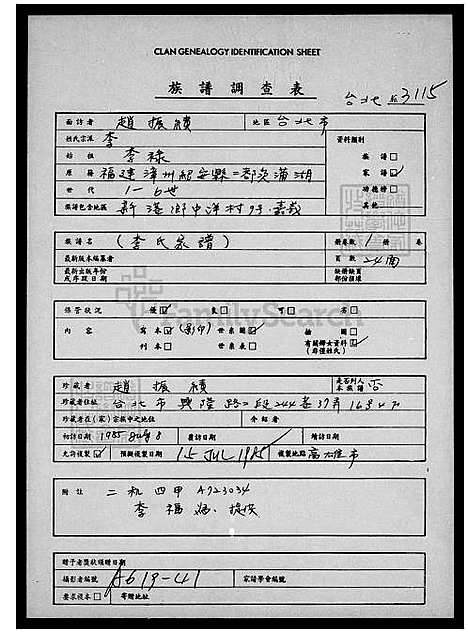 CLAN GENEALOGY IDENTIFICATION SHEET
族譜調查表
台北 3115
面訪者 趙振績 地區 台北市
姓氏宗派 李 資料類別
始祖 李祿 族譜□
原籍 福建漳州詔安縣二都 家譜☑
世代 1-6世 功德榜□
族譜包含地區 新港鄉中洋村9号嘉義 其他
族譜名 (李氏家譜) 冊卷數 1 冊 卷
最新版本編纂者 頁數 24面
最新出版年份 缺冊缺頁
或序跋日期 部份損壞
保管狀況 優☑ 良□ 可□ 否□
內容 寫本□(影印) 世系圖☑ 繪圖□
刊本□ 世系表□ 有關婦女資料☑
(非僅姓氏)
珍藏者 趙振績 是否列入本族譜 否
珍藏者住址 台北市興隆路二段244巷37弄16号
珍藏者在(家)宗族中之地位 介紹者
初訪日期 1985 8 覆訪日期 續訪日期
允許複製☑ 預擬複製日期 15 JUL 1985 複製地點 高雄市
附註 二机四甲 A723034
李福 提供
贈予者獎狀頒贈日期
攝影者編號 A619-41 家譜學會編號
要求複本□ 寄贈地址
FamilySearch